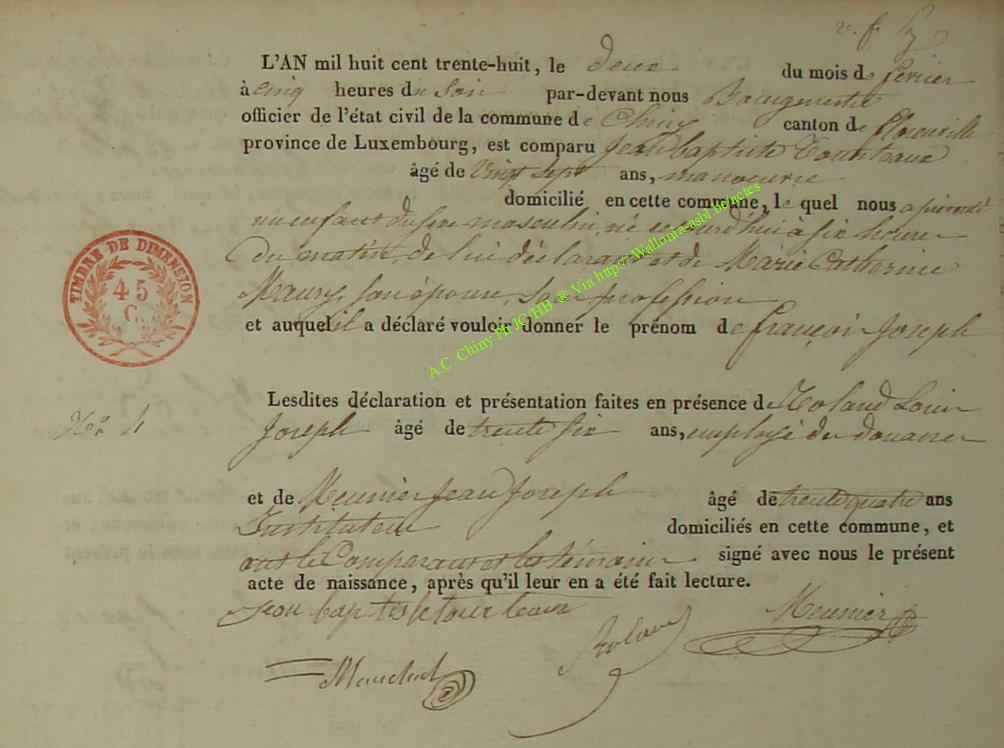 L'AN mil huit cent trente-huit, le deux du mois de fevrier
à cinq heures du Soir par-devant nous Bourgmestre
officier de l'état civil de la commune de Chiny canton de florenville
province de Luxembourg, est comparu Jean baptiste Tourteaux
âgé de Vingt Sept ans, manoeuvre
domicilié en cette commune, le quel nous a présenté
un enfant du sexe masculin, né aujourd'hui a six heures
du matin, de lui déclarant et de Marie Catherine
Maury, son épouse, sans profession
et auquel il a déclaré vouloir donner le prénom de françois Joseph
TIMBRE DE DIMENSION
45
C.
Lesdites déclaration et présentation faites en présence de Roland Louis
No. 4
Joseph âgé de trente six ans, employé des douanes
et de Meunier Jean Joseph âgé de trente quatre ans
Instituteur domiciliés en cette commune, et
ont le Comparant et les témoins signé avec nous le présent
acte de naissance, après qu'il leur en a été fait lecture.
Jean baptiste tourteaux
Roland
Meunier
A.C. Chiny Ph JC HB ® Via http://Wallonia-asbl.be/actes